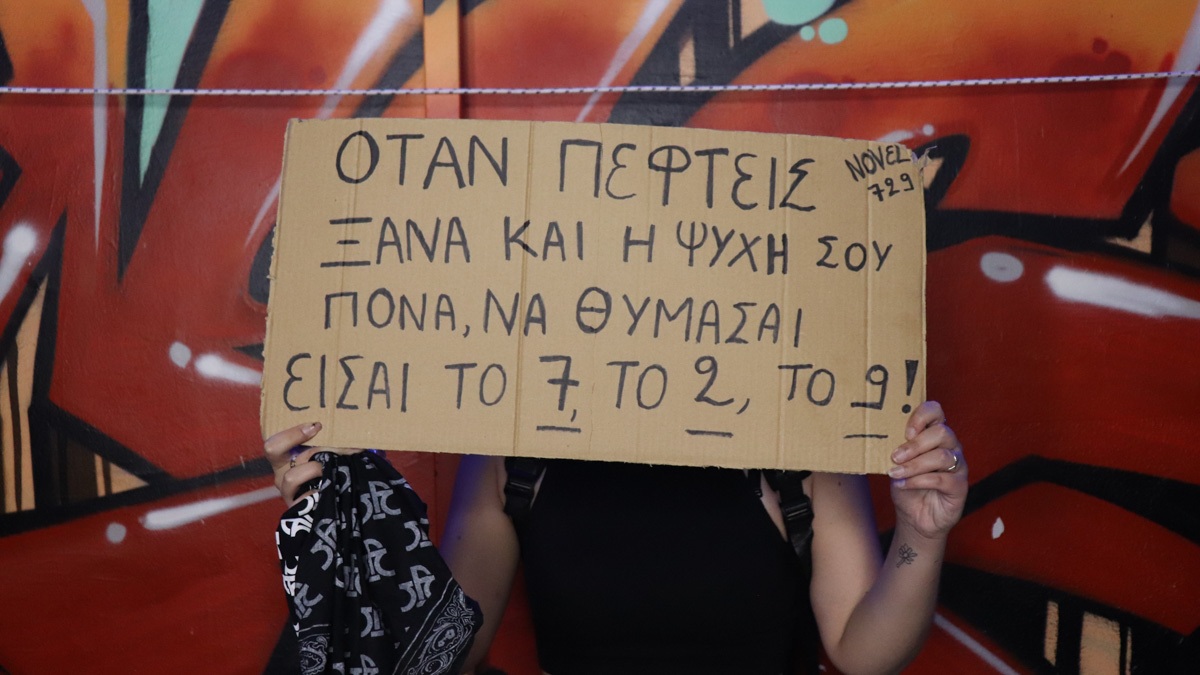 ΟΤΑΝ ΠΕΦΤΕΙΣ
NOVEL
729
ΞΑΝΑ ΚΑΙ Η ΨΥΧΗ ΣΟΥ
ΠΟΝΑ, ΝΑ ΘΥΜΑΣΑΙ
ΕΙΣΑΙ ΤΟ 7, ΤΟ 2, ΤΟ 9!